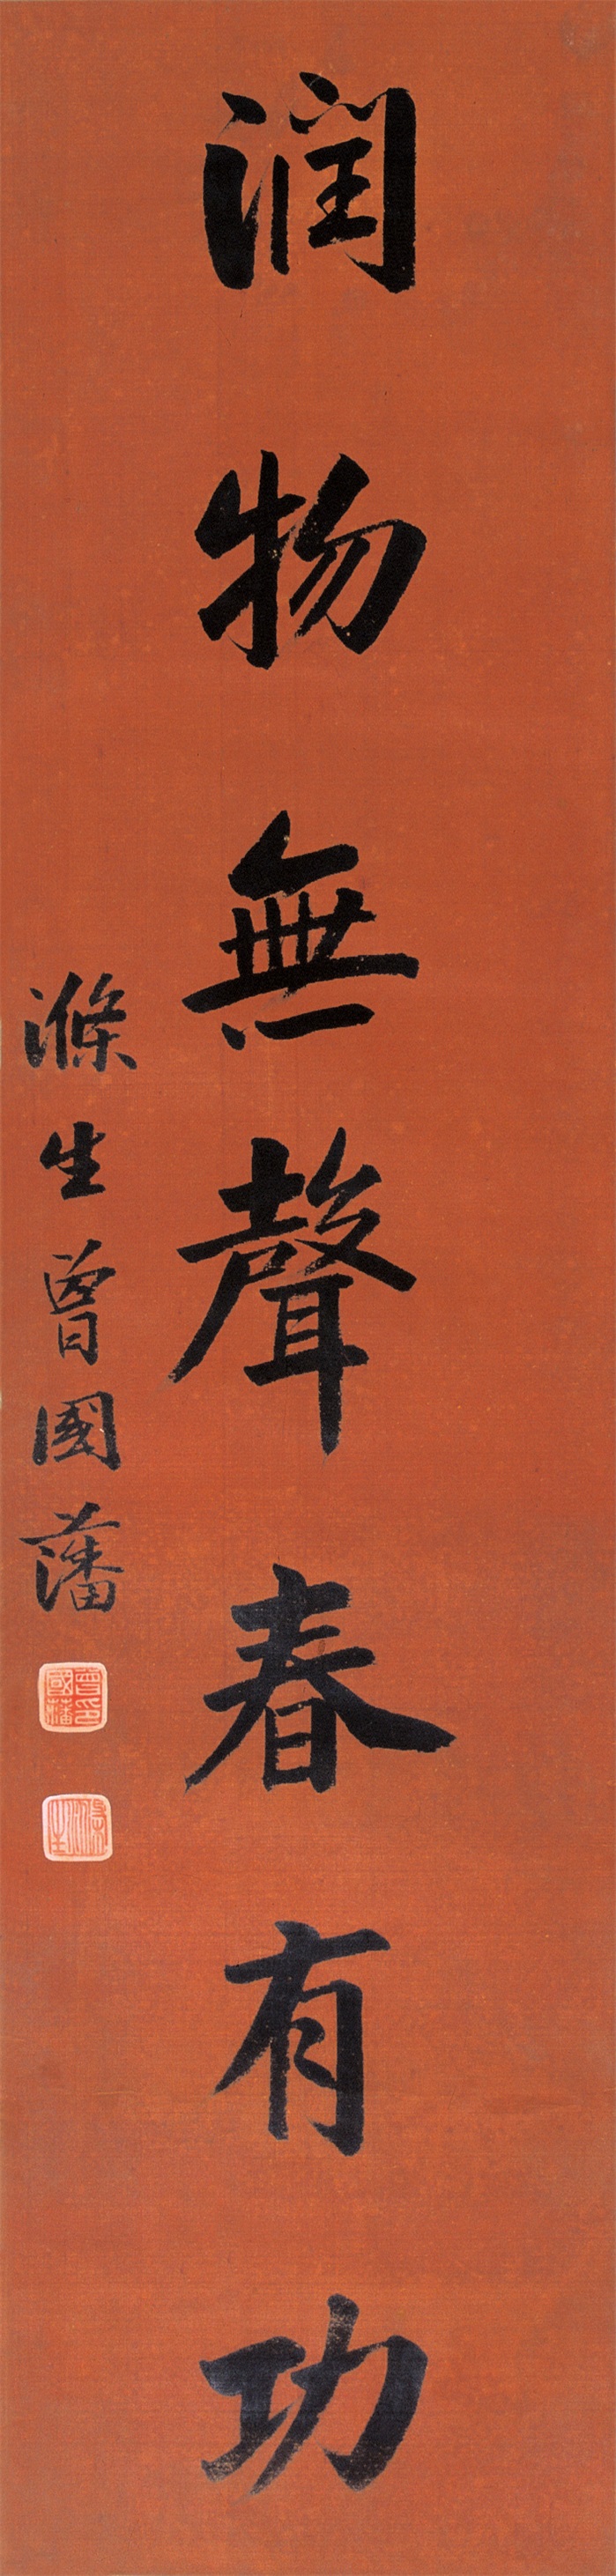 润物無聲春有功
滌生曾國藩
曾國藩印
滌生